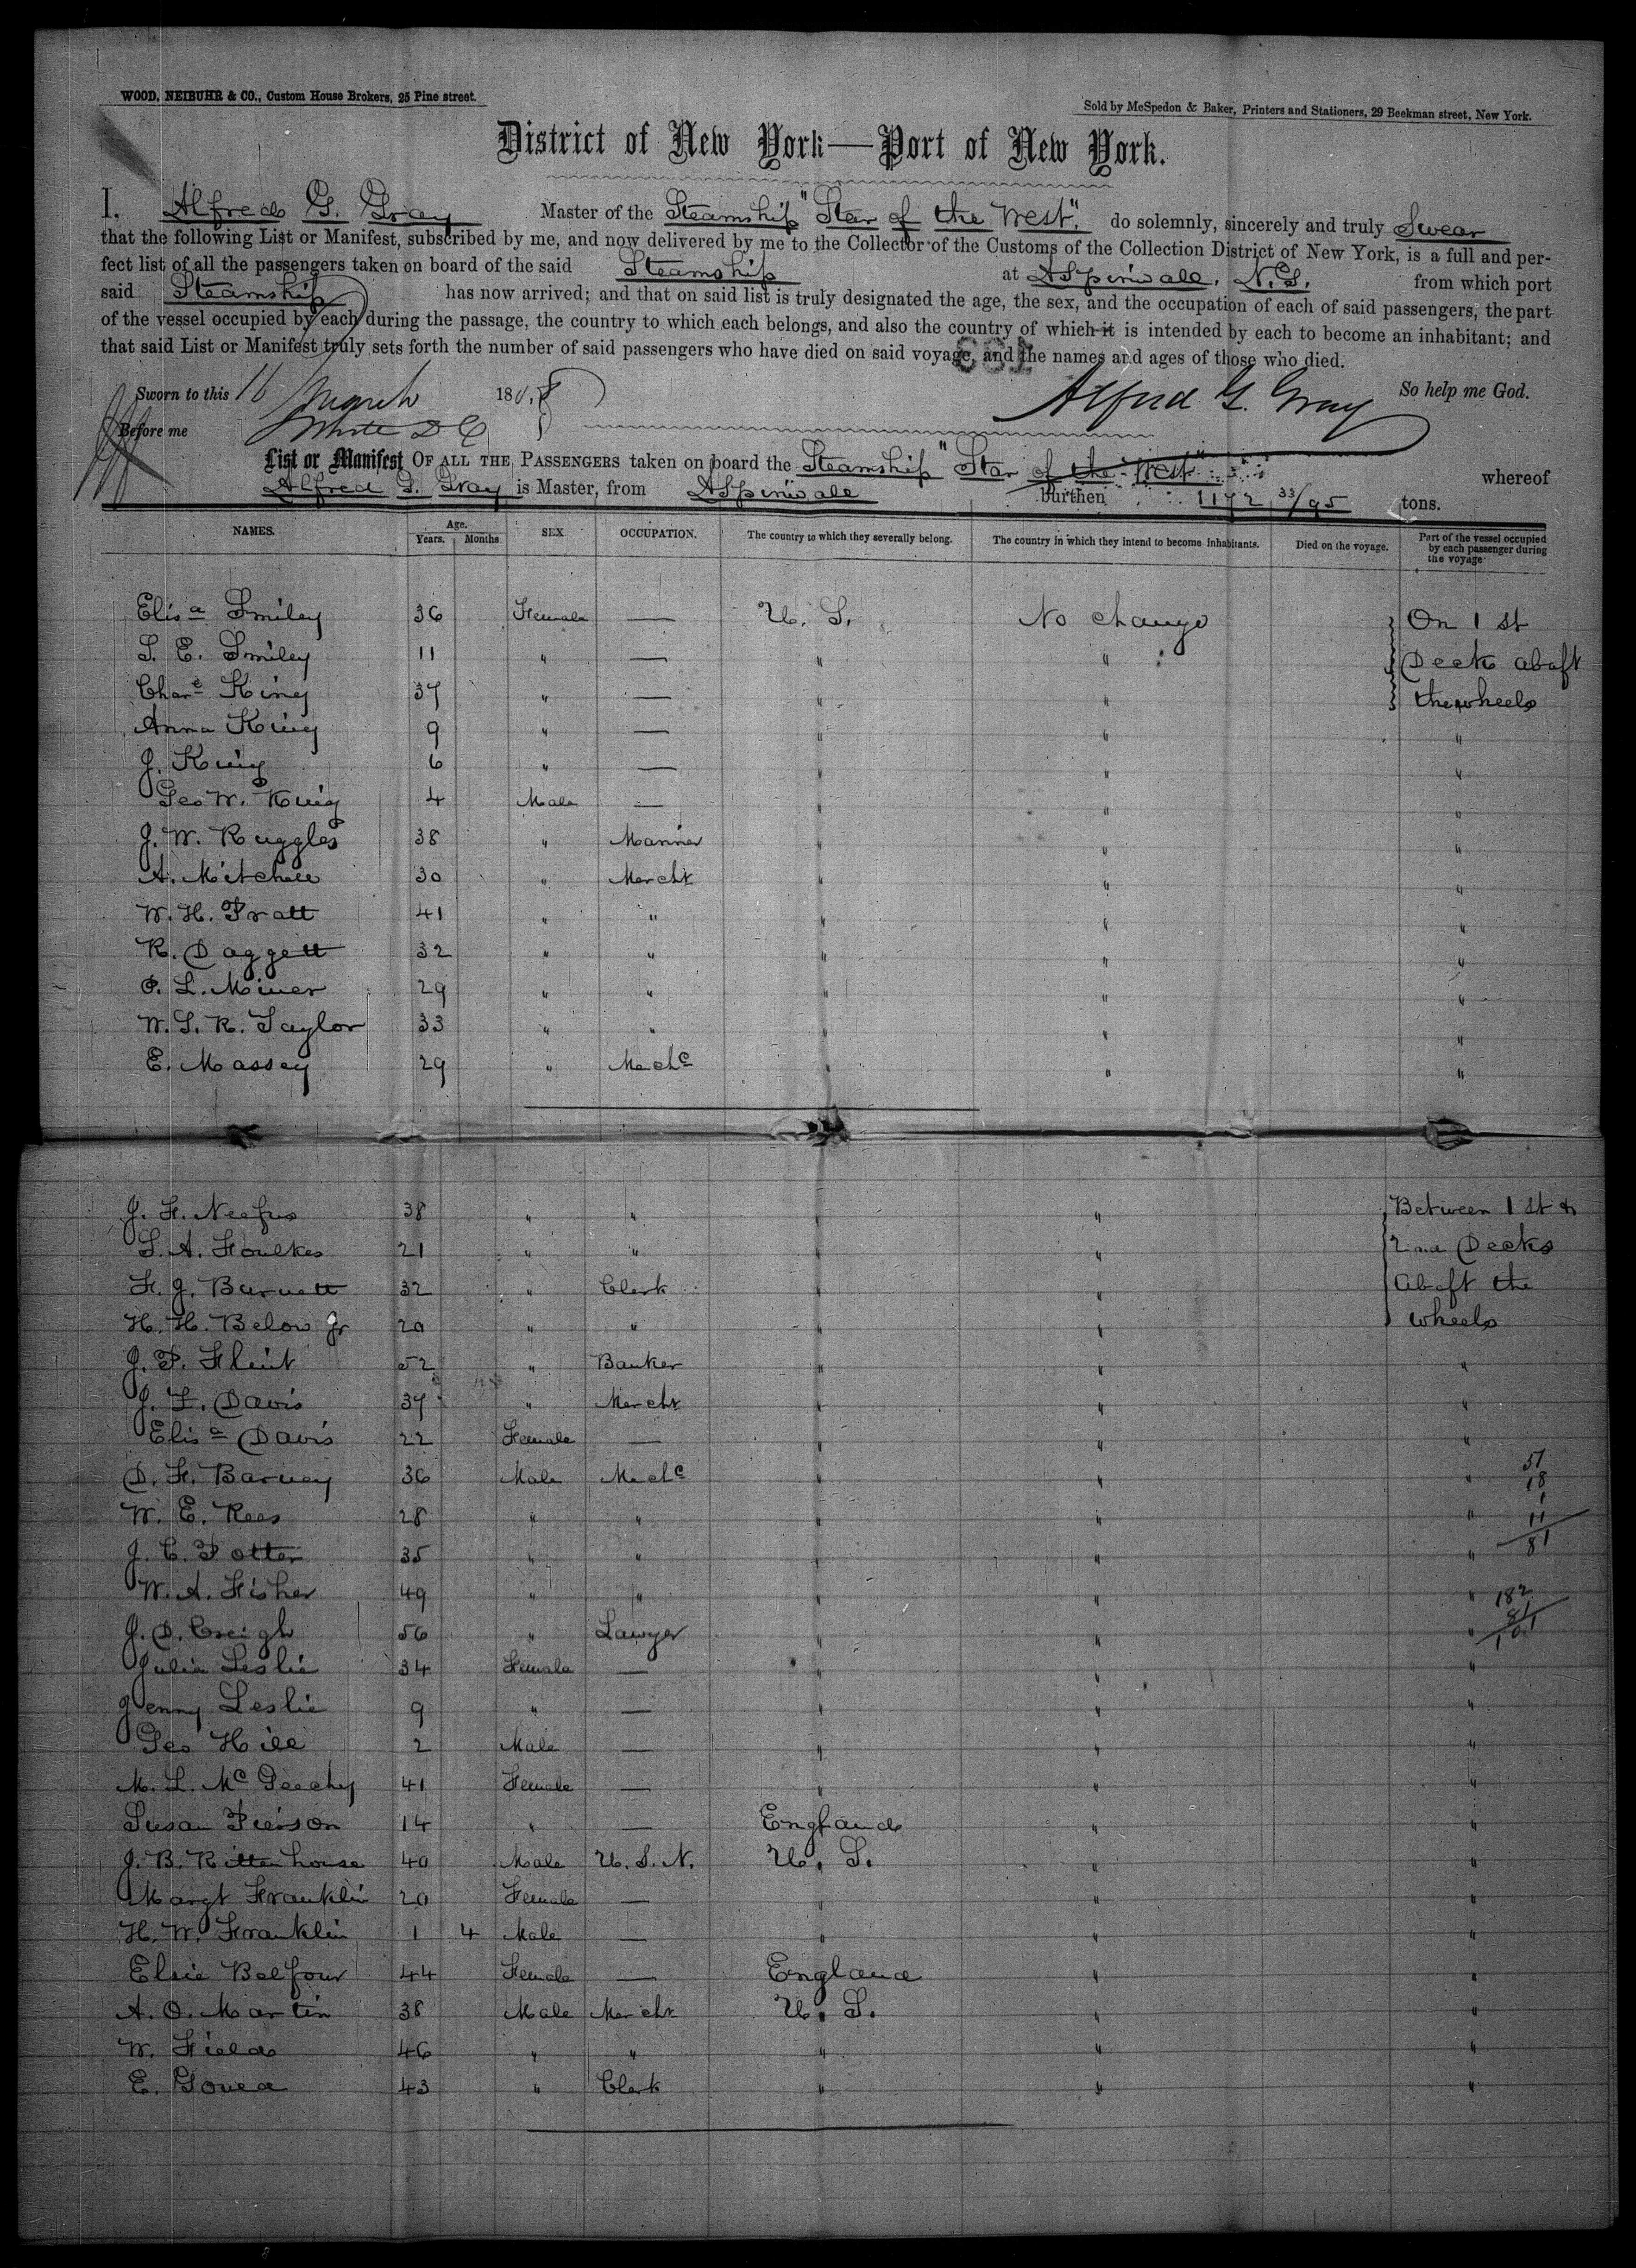 WOOD, NEIBUHR & CO., Custom House Brokers, 25 Pine street.
Sold by McSpedon & Baker, Printers and Stationers, 29 Beekman street, New York.
District of New York—Port of New York.
I, Alfred G. Gray Master of the Steamship "Star of the West". do solemnly, sincerely and truly Swear
that the following List or Manifest, subscribed by me, and now delivered by me to the Collector of the Customs of the Collection District of New York, is a full and per-
fect list of all the passengers taken on board of the said Steamship at Aspinwall, N.G. from which port
said Steamship has now arrived; and that on said list is truly designated the age, the sex, and the occupation of each of said passengers, the part
of the vessel occupied by each during the passage, the country to which each belongs, and also the country of which it is intended by each to become an inhabitant; and
that said List or Manifest truly sets forth the number of said passengers who have died on said voyage, and the names and ages of those who died.
Sworn to this 16 March 18 So help me God.
Alfred G. Gray
Before me
List or Manifest OF ALL THE PASSENGERS taken on board the Steamship "Star of the West" whereof
Alfred G. Gray is Master, from Aspinwall burthen 1172 33/95 tons.
NAMES. Age. Years. Months. SEX. OCCUPATION. The country to which they severally belong. The country in which they intend to become inhabitants. Died on the voyage. Part of the vessel occupied by each passenger during the voyage
Elisa Smiley 36 Female — U. S. No change On 1 st
S. E. Smiley 11 " — " " Deck abaft
Chare King 37 " — " " the wheels
Anna King 9 " — " " "
J. King 6 " — " " "
Geo W. King 4 Male — " " "
J. W. Ruggles 38 " Mariner " " "
A. Mitchell 30 " Mercht " " "
W. H. Pratt 41 " " " " "
R. Daggett 32 " " " " "
P. L. Miner 29 " " " " "
W. S. R. Taylor 33 " " " " "
E. Massey 29 " Mechc " " "
J. F. Neefus 38 " " " " Between 1 st &
S. A. Foulkes 21 " " " " 2nd Decks
F. J. Burnett 32 " Clerk " " abaft the
H. H. Below Jr 20 " " " " wheels
J. P. Flint 52 " Banker " " "
J. F. Davis 37 " Mercht " " "
Elisa Davis 22 Female — " " "
D. F. Barney 36 Male Mechc " " " 51
18
1
W. E. Rees 28 " " " " " 11
J. C. Potter 35 " " " " " 81
W. A. Fisher 49 " " " " " 182
81
J. D. Creigh 56 " Lawyer " " " 101
Julia Leslie 34 Female — " " "
Jenny Leslie 9 " — " " "
Geo Hill 2 Male — " " "
M. L. McGeechy 41 Female — " " "
Susan Pierson 14 " — England " "
J. B. Rittenhouse 40 Male U. S. N. U. S. " "
Margt Franklin 20 Female — " " "
H. W. Franklin 1 4 Male — " " "
Elsie Balfour 44 Female — England " "
A. O. Martin 38 Male Mercht U. S. " "
W. Fields 46 " " " " "
E. 43 " Clerk " " "